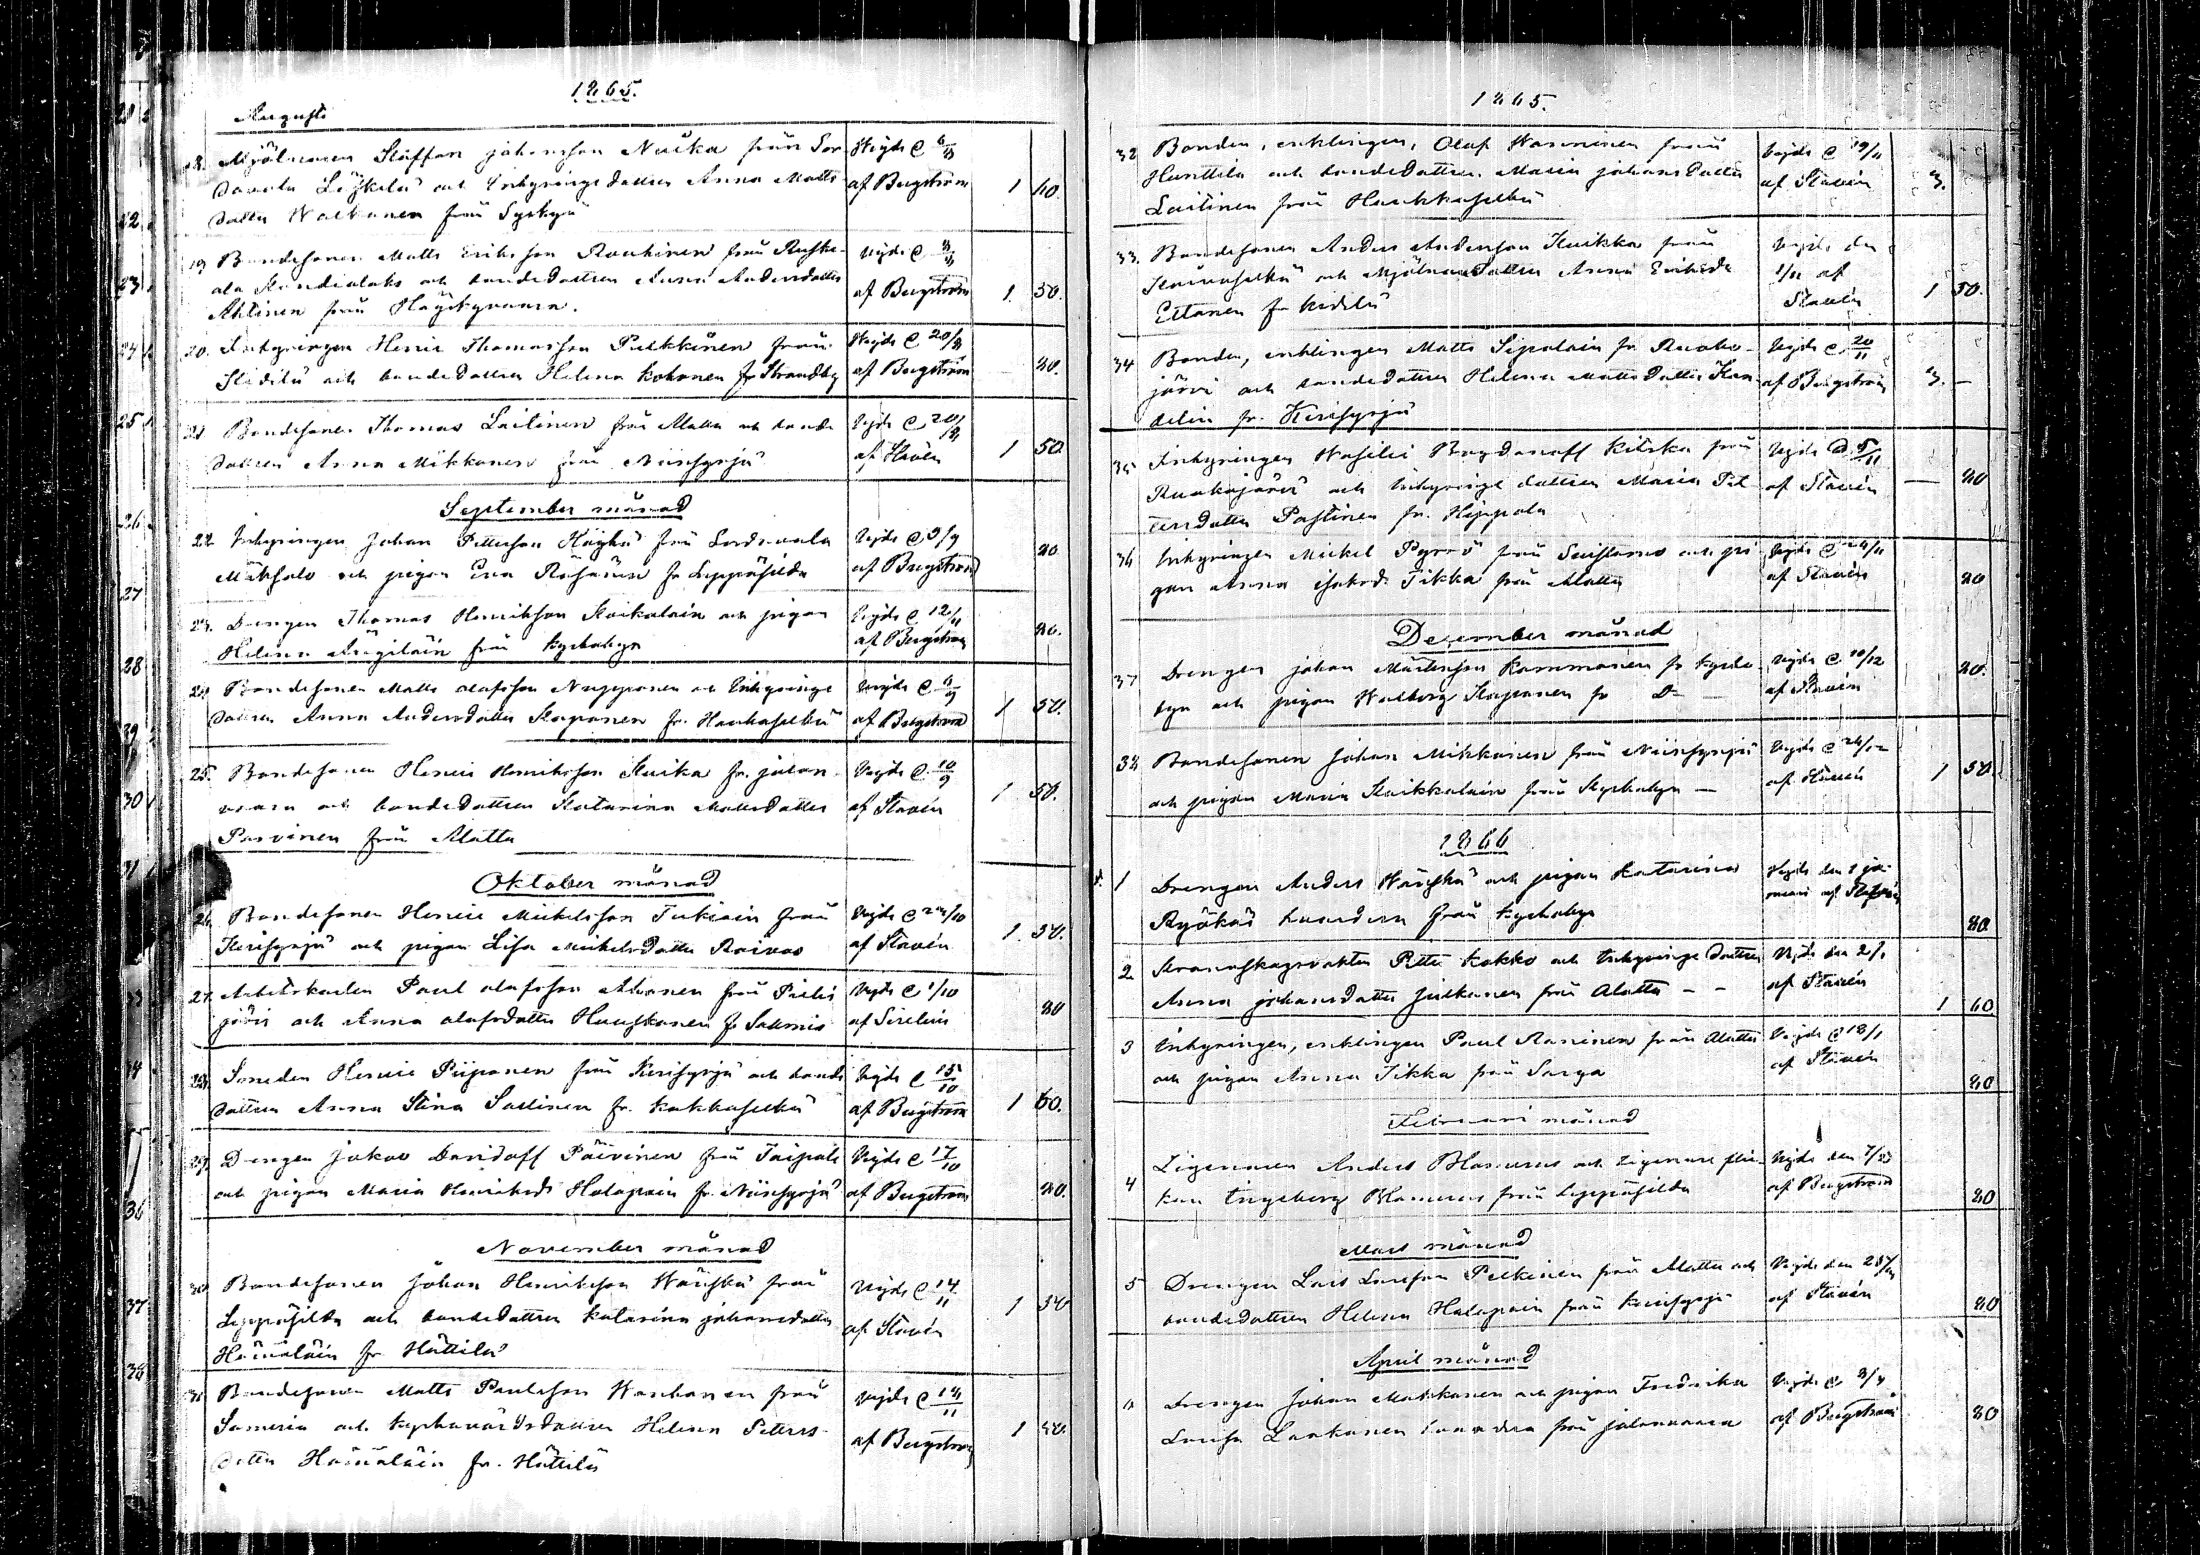 1865.
Augusti
18. Mjölnaren Staffan Johansson Nuika från Sor
davala Läskelä och Inhysinge dottren Anna Matts
dotter Walkonen från Syskyä
Vigde d 6/8
af Bergström
1 60.
19 Bondesonen Matts Eriksson Rouhinen från Ruske-
ala och bondedottren Anna Andersdotter
Ahtinen från
Vigde d
af Bergström
1. 50.
20. Inhysingen Henric Thomasson Pulkkinen från
Kidilä och bondedottren Helena Kohonen fr Strandby
Vigde d 20/8
af Bergström
80.
21 Bondesonen Thomas Laitinen från Alattu och bonde
dottren Anna Mikkonen från Niinisyrjä
Vigde d 20/8
af Stavén
1 50
September månad
22 Inhysingen Johan Pettersson Häyhä från Sordavala
och pigan Eva fr Leppäsilda
Vigde d 3/9
af Bergström
80
23. Drengen Thomas Henriksson Kaikalain och pigan
Helena från Kyrkobyn
Vigde d
af Bergström
80.
24 Bondesonen Matts Olafsson Nupponen och Inhysinge
dottren Anna Andersdotter Kaponen fr. Haukaselkä
Vigde d
af Bergström
1 50.
25. Bondesonen Henric Henriksson Kuika fr. Jalon
vaara och bondedottren Katarina Mattsdotter
Parvinen från Alattu
Vigde d. 10/9
af Stavén
1 50.
Oktober månad
26 Bondesonen Henric Mickelsson Tukiain från
Kerisyrjä och pigan Lisa Mickelsdotter Raivas
Vigde d
af Stavén
1. 50.
27. Arbetskarlen Paul Olafsson Ahonen från Pielis
järvi och Anna Olafsdotter Hauskonen fr Salmis
Vigde d 1/10
af Sirelius
80
28. Smeden Henric Piiponen från Kerisyrjä och bonde
dottren Anna Stina Sallinen fr. Kokkaselkä
Vigde d 15/10
af Bergström
1 60.
29. Drengen Jakov Davidoff Päivinen från Taipale
och pigan Maria Henriksd: Halapain fr. Niinisyrjä
Vigde d 17/10
af Bergström
80.
November månad
30 Bondesonen Johan Henriksson Wänskä från
Leppäsilda och bondedottren Katarina Johansdotter
Hämäläin fr Hättilä
Vigde d 14/11
af Stavén
1 50
31 Bondesonen Matts Paulsson Wanhanen från
Sumeria och Kyrkovärdsdottren Helena Petters-
dotter Hämäläin fr. Hättilä
Vigde d
af Bergström
1 50.
1865.
32 Bonden, enklingen, Olof Wasninen från
Hunttila och bondedottren Maria Johansdotter
Laitinen från Haukkaselkä
Vigde d 19/11
af Stavén
3.
33. Bondesonen Anders Andersson Kuikka från
och Mjölnaredotter Anna Eriksdr
Eitanen fr Kidilä
Vigde den
1/11 af
Stavén
1 50.
34 Bonden, enklingen Matts Sipolain fr Ruoko-
järvi och bondedottren Helena Mattsdotter Kan
delin fr. Kerisyrjä
Vigde d. 20/11
af Bergström
3. —
35 Inhysingen Wasilei Bogdanoff Kiiska från
Ruokojärvi och Inhysinge dottren Maria Pet
tersdotter Pastinen fr. Hippola
Vigde d. 5/11
af Stavén
— 80
36 Inhysingen Mickel Pyrrö från Suistamo och pi
gan Anna Isaksd. Tikka från Alattu
Vigde d 26/11
af Stavén
80
December månad
37 Drengen Johan Mårtensson Rommonen fr Kyrko
byn och pigan Walborg Kaponen fr Do —
Vigde d. 10/12
af Stavén
80.
38 Bondesonen Johan Mikkonen från Niinisyrjä
och pigan Maria Kaikkalain från Kyrkobyn —
Vigde d 26/12
af Stavén
1 50.
1866
1 Drengen Anders Wänskä och pigan Katarina
Ryökäs hvardera från Kyrkobyn
Vigde den 1 ja
nuari af Stavén
80
2 Kronoskogsvakten Petter Kokko och Inhysinge dottren
Anna Johansdotter Julkunen från Alattu - -
Vigde den 2/1
af Stavén
1 60
3 Inhysingen, enklingen Paul Raninen från Alattu
och pigan Anna Tikka från Sarga
Vigde d 18/1
af Stavén
80
Februari månad
4 Zigenaren Anders Blomerus och Zigenare flic-
kan Ingeborg Blomerus från Leppäsilda
Vigde den
af Bergström
80
Mars månad
5 Drengen Lars Larsson Pelkinen från Alattu och
bondedottren Helena Halapain från Kerisyrjä
Vigde den
af Stavén
80
April månad
6 Drengen Johan Makkonen och pigan Fredrika
Lovisa Laakonen hvardera från Jalonvaara
Vigde d. 3/4
af Bergström
80